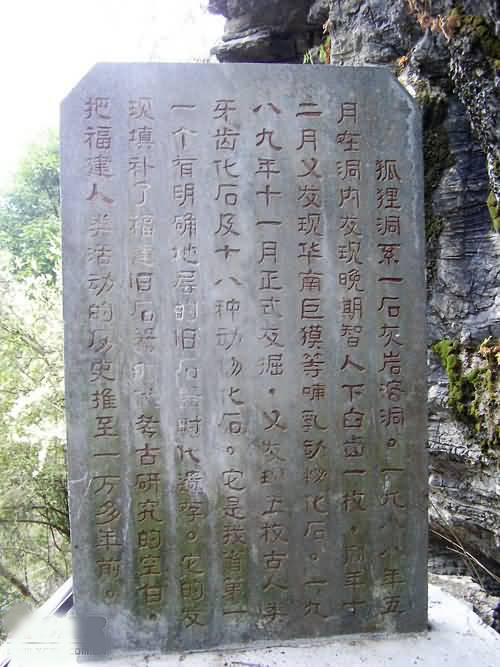 狐狸洞系一石灰岩溶洞。一九八八年五
月在洞内发现晚期智人下臼齿一枚,同年十
二月又发现华南巨獏等哺乳动物化石。一九
八九年十一月正式发掘,又发现五枚古人类
牙齿化石及十八种动物化石。它是我省第一
一个有明确地层的旧石器时代遗存。它的发
现填补了福建旧石器时代考古研究的空白,
把福建人类活动的历史推至一万多年前。